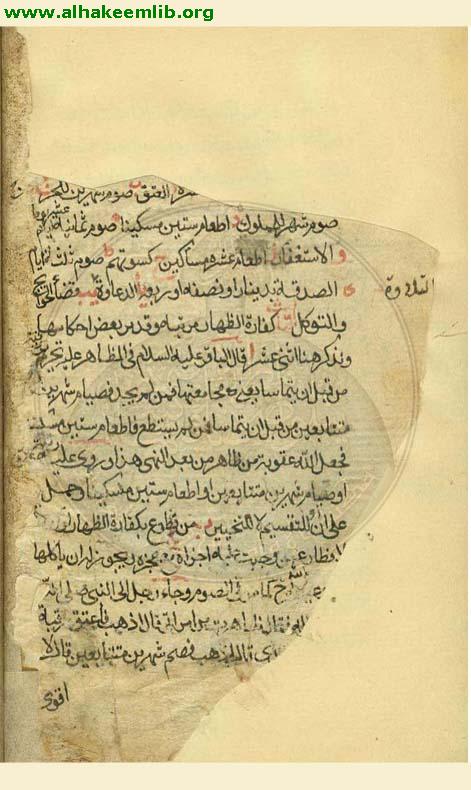 www.alhakeemlib.org
العتق صوم شهرين
صوم شهر للمملوك اطعام ستين مسكينا صوم ثمانية
والاستغفار اطعام عشرة مساكين كسوتهم صوم ثلثة ايام
الصدقة بدينار او نصفه او ربعه
التلاوة
والتوكل كفارة الظهار مرتبة وقد مر بعض احكامها
ونذكر هنا اثنى عشر قال الباقر عليه السلام في المظاهر عليه تحرير
من قبل ان يتماسا يعنى مجامعتها فمن لم يجد فصيام شهرين
متتابعين من قبل ان يتماسا فمن لم يستطع فاطعام ستين مسكينا
فجعل الله عقوبة من ظاهر من بعد النهى هذا وروى عليه
او صيام شهرين متتابعين او اطعام ستين مسكينا وحمل
على ان للتقسيم لا للتخيير من تطوع بكفارة الظهار
وجبت عليه اجزاه يجزه ويجوز ان ياكلها
كما مر في الصوم وجاء رجل الى النبى صلى الله
فقال ظاهرت من امراتى قال اذهب فاعتق رقبة
قال اذهب فصم شهرين متتابعين قال لا
اقوى